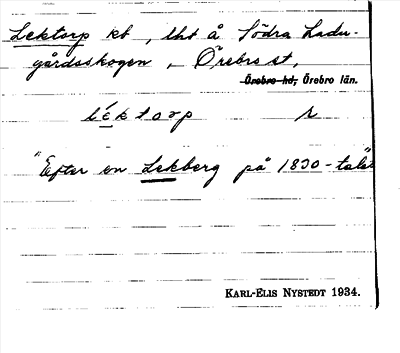 Lektorp kt, lht å Södra Ladu-
gårdsskogen, Örebro st,
Örebro hd, Örebro län.
léktorp r
"Efter en Lekberg på 1830-talet"
KARL-ELIS NYSTEDT 1934.